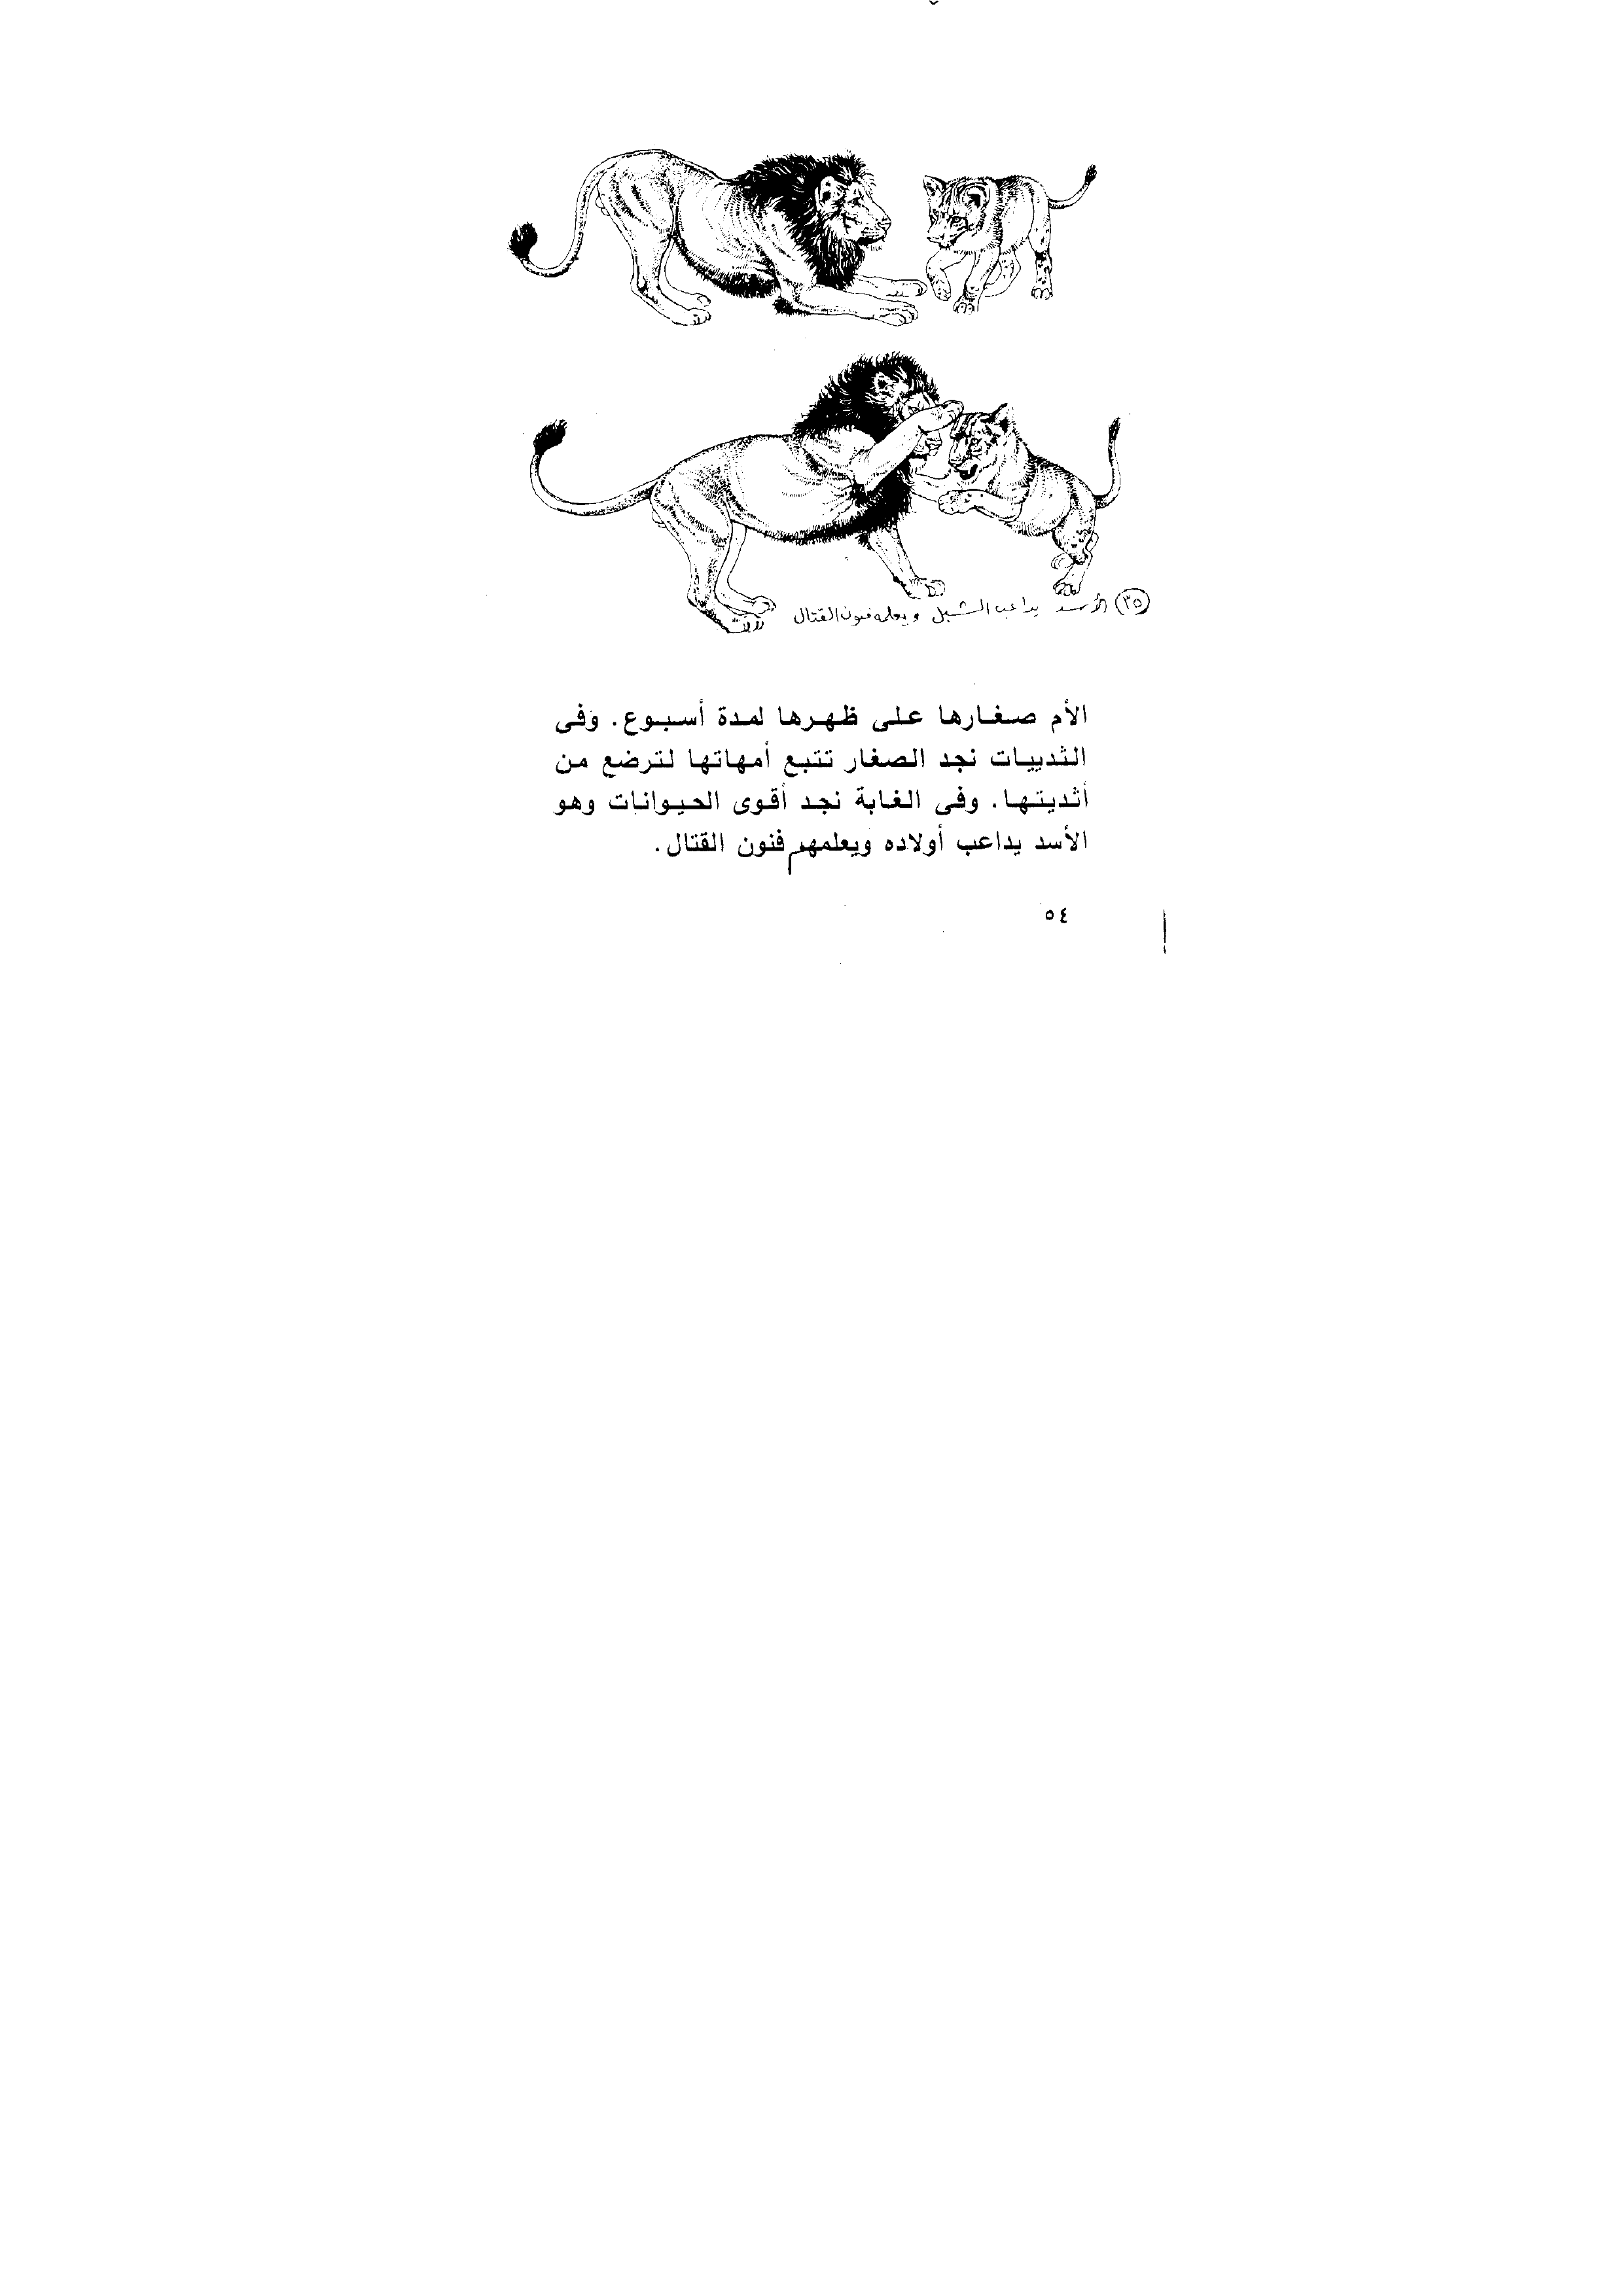 (٣٥) الأسد يداعب الشبل ويعلمه فنون القتال
الأم صغارها على ظهرها لمدة أسبوع. وفى
الثدييات نجد الصغار تتبع أمهاتها لترضع من
أثديتها. وفى الغابة نجد أقوى الحيوانات وهو
الأسد يداعب أولاده ويعلمهم فنون القتال.
٥٤